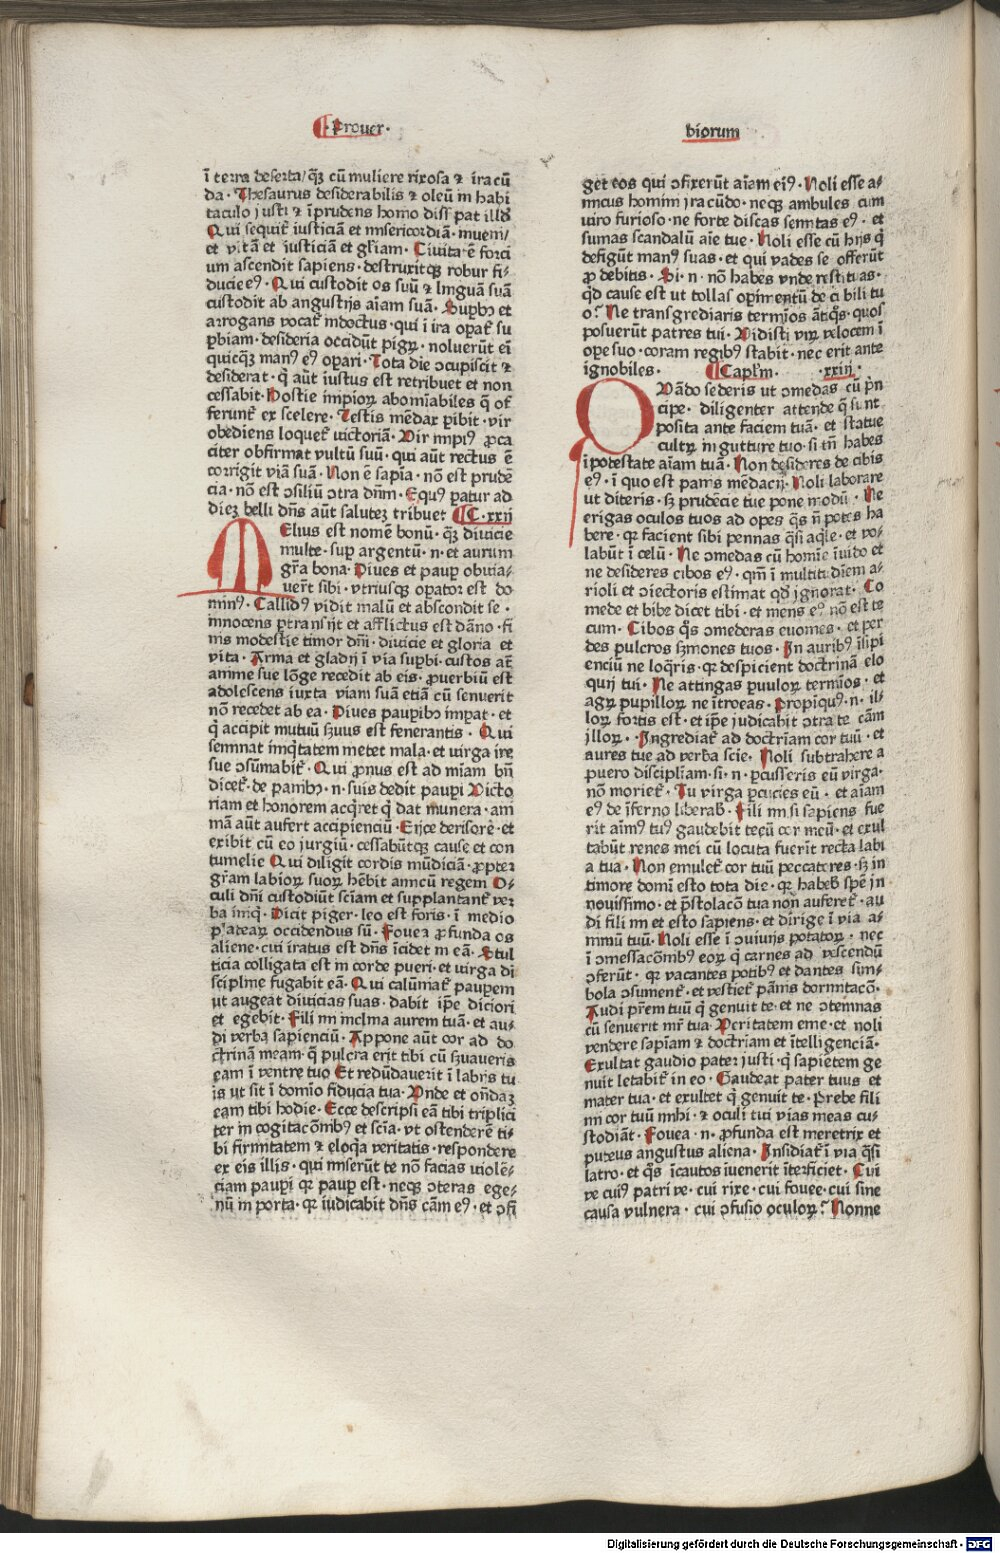 ·Prouer·
biorum
ī terra deserta/ q̄ꝫ cū muliere rixosa ⁊ iracū
da· Thesaurus desiderabilis ⁊ oleū in habi
taculo justi ⁊ īprudens homo dissipat illd̄
Qui sequit̄ iusticiā et misericordiā· inueni/
et vitā et iusticiā et gl̄iam· Ciuitatē forci
um ascendit sapiens· destruxitqꝫ robur fi-
ducie eꝰ· Qui custodit os suū ⁊ linguā suā
custodit ab angustijs aīam suā· Supbꝰ et
arrogans vocat̄ indoctus· qui ī ira opat̄ su
pbiam· desideria occidūt pigꝝ· noluerūt eī
quicqꝫ manꝰ eꝰ opari· Tota die ↄcupiscit ⁊
desiderat· q̄ aūt iustus est retribuet et non
cessabit· Hostie impioꝝ abomīabiles q̄ of
ferunt̄ ex scelere· Testis mēdax pibit· vir
obediens loquet̄ victoriā· Vir impiꝰ proca
citer obfirmat vultū suū· qui aūt rectus ē
corrigit viā suā· Non ē sapīa· nō est prudē
cia· nō est ↄsiliū ↄtra dn̄m· Equꝰ patur ad
diez belli dn̄s aūt salutez tribuet C·xxij
MElius est nomē bonū· q̄ꝫ diuicie
multe· sup argentū·n·et aurum
gr̄a bona· Diues et paup obuia-
uert̄ sibi· vtriusqꝫ opator est do
minꝰ· Callidꝰ vidit malū et abscondit se·
innocens ptransijt et afflictus est dāno· fi
nis modestie timor dn̄i· diuicie et gloria et
vita· Arma et gladij ī via supbi· custos at̄
anime sue lōge recedit ab eis· prouerbiū est
adolescens iuxta viam suā etiā cū senuerit
nō recedet ab ea· Diues paupibꝫ impat· et
q̄ accipit mutuū seruus est fenerantis· Qui
seminat iniq̄tatem metet mala· et virga ire
sue ↄsūmabit̄· Qui pronus est ad miam bn̄
dicet̄· de panibꝫ·n·suis dedit paupi Victo
riam et honorem acq̄ret q̄ dat munera· ani
mā aūt aufert accipienciū· Eijce derisorē· et
exibit cū eo jurgiū· cessabūtqꝫ cause et con
tumelie Qui diligit cordis mūdiciā· propter
gr̄am labioꝝ suoꝝ hēbit amicū regem O-
culi dn̄i custodiūt sciam et supplantant̄ ver
ba iniq̄· Dicit piger· leo est foris· ī medio
plateaꝝ occidendus sū· Fouea profunda os
aliene· cui iratus est dn̄s īcidet in eā· Stul
ticia colligata est in corde pueri· et virga di
scipline fugabit eā· Qui calūniat̄ paupem
ut augeat diuicias suas· dabit ipe diciori
et egebit· Fili mi inclina aurem tuā· et au-
di verba sapienciū· Appone aūt cor ad do
ctrinā meam· q̄ pulcra erit tibi cū seruaueris
eam ī ventre tuo Et redūdauerit ī labijs tu
is ut sit ī domīo fiducia tua· Vnde et ondaꝫ
eam tibi hodie· Ecce descripsi eā tibi triplici
ter in cogitacōnibꝰ et scīa· vt ostenderē ti-
bi firmitatem ⁊ eloq̄a veritatis· respondere
ex eis illis· qui miserūt te nō facias violē-
ciam paupi qꝛ paup est· neqꝫ ↄteras ege-
nū in porta· qꝛ iudicabit dn̄s cām eꝰ· et ↄfi
get eos qui ↄfixerūt aīam eiꝰ· Noli esse a-
micus homini jracūdo· neqꝫ ambules cum
viro furioso· ne forte discas semitas eꝰ· et
sumas scandalū aīe tue· Noli esse cū hijs q̄
defigūt manꝰ suas· et qui vades se offerūt
pro debitis· Si·n·nō habes vnde restituas·
qd̄ cause est ut tollas opimentū de cubili tu
o? Ne transgrediaris termīos ātiq̄s· quos
posuerūt patres tui· Vidisti viꝝ velocem ī
ope suo· coram regibꝰ stabit· nec erit ante
ignobiles· Caplm̄· ·xxiij·
QVādo sederis ut ↄmedas cū prin
cipe· diligenter attende q̄ sunt
posita ante faciem tuā· et statue
cultꝝ in gutture tuo· si tn̄ habes
ī potestate aīam tuā· Non desideres de cibis
eꝰ· ī quo est panis mēdacij· Noli laborare
ut diteris· sꝫ prudēcie tue pone modū· Ne
erigas oculos tuos ad opes q̄s n̄ potes ha
bere· qꝛ facient sibi pennas q̄si aq̄le· et vo-
labūt ī celū· Ne ↄmedas cū homīe īuido et
ne desideres cibos eꝰ· qm̄ ī multitudīem a-
rioli et ↄiectoris estimat qd̄ ignorat· Co
mede et bibe dicet tibi· et mens eꝰ nō est te
cum· Cibos q̄s ↄmederas euomes· et per
des pulcros sermones tuos· In auribꝰ īsipi
enciū ne loq̄ris· qꝛ despicient doctrinā elo
quij tui· Ne attingas puuloꝝ termīos· et
agꝝ pupilloꝝ ne ītroeas· Propīquꝰ·n·il-
loꝝ fortis est· et ipe judicabit ↄtra te cām
jlloꝝ· Ingrediat̄ ad doctrīam cor tuū· et
aures tue ad verba scie· Noli subtrahere a
puero disciplīam· si·n·pcusseris eū virga·
nō moriet̄· Tu virga pcucies eū· et aīam
eꝰ de īferno liberab̄· Fili mi si sapiens fue
rit aīmꝰ tuꝰ gaudebit tecū cor meū· et exul
tabūt renes mei cū locuta fuerīt recta labi
a tua· Non emulet̄ cor tuū peccatores· sꝫ in
timore domī esto tota die· qꝛ habeb̄ spē jn
nouissimo· et pstolacō tua non auferet̄· au
di fili mi et esto sapiens· et dirige ī via a-
nimū tuū· Noli esse ī ↄuiuijs potatoꝝ· nec
ī ↄmessacōnibꝰ eoꝝ q̄ carnes ad vescendū
ↄferūt· qꝛ vacantes potibꝰ et dantes sim-
bola ↄsument̄· et vestiet̄ pānis dormitacō·
Audi prēm tuū q̄ genuit te· et ne ↄtemnas
cū senuerit mr̄ tua· Veritatem eme· et noli
vendere sapīam ⁊ doctrīam et ītelligenciā·
Exultat gaudio pater justi· q̄ sapietem ge
nuit letabit̄ in eo· Gaudeat pater tuus et
mater tua· et exultet q̄ genuit te· Prebe fili
mi cor tuū mihi· ⁊ oculi tui vias meas cu-
stodiāt· Fouea·n·profunda est meretrix et
puteus angustus aliena· Insidiat̄ ī via q̄si
latro· et q̄s īcautos iuenerit īterficiet· Cui
ve cuiꝰ patri ve· cui rixe· cui fouee· cui sine
causa vulnera· cui ↄfusio oculoꝝ? Nonne
Digitalisierung gefördert durch die Deutsche Forschungsgemeinschaft - DFG